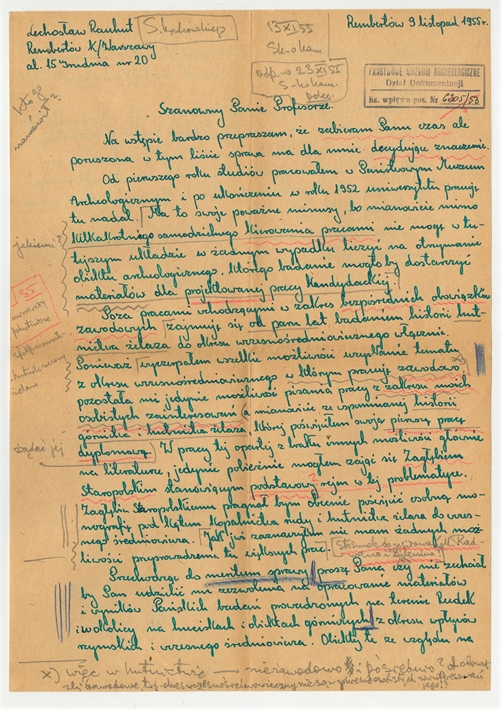 Lechosław Rauhut
Rembertów K/Warszawy
al. 15 Grudnia nr 20
Rembertów 9 listopad 1955 r.
13 XI 55
odp. w 23 XI 55
PAŃSTWOWE MUZEUM ARCHEOLOGICZNE
Dział Dokumentacji
ks. wpływu poz. Nr 6205/55
Szanowny Panie Profesorze.
Na wstępie bardzo przepraszam, że zabieram Panu czas ale
poruszona w tym liście sprawa ma dla mnie decydujące znaczenie.
Od pierwszego roku studiów pracowałem w Państwowym Muzeum
Archeologicznym i po ukończeniu w roku 1952 uniwersytetu pracuję
tu nadal. Ma to swoje poważne minusy, bo mianowicie mimo
kilkakrotnego samodzielnego kierowania pracami nie mogę w tu-
tejszym układzie w żadnym wypadku liczyć na otrzymanie
obiektu archeologicznego, którego badanie mogłoby dostarczyć
materiałów dla projektowanej pracy Kandydackiej.
Poza pracami wchodzącymi w zakres bezpośrednich obowiązków
zawodowych zajmuję się od paru lat badaniem historii hut-
nictwa żelaza do okresu wczesnośredniowiecznego włącznie.
Ponieważ wyczerpałem wszelkie możliwości uzyskania tematu
z okresu wczesnośredniowiecznego w którym pracuję zawodowo
pozostała mi jedynie możliwość pisania pracy z zakresu moich
osobistych zainteresowań a mianowicie ze wspomnianej historii
górnictwa i hutnictwa żelaza której poświęciłem swoją pierwszą pracę
dyplomową. W pracy tej opartej z braku innych możliwości głównie
na literaturze, jedynie pobieżnie mogłem zająć się Zagłębiem
Staropolskim stanowiącym podstawowy rejon w tej problematyce.
Zagłębiu Staropolskiemu pragnął bym obecnie poświęcić osobną mo-
nografię pod kątem kopalnictwa rudy i hutnictwa żelaza do wcze-
snego średniowiecza. Jak już zaznaczyłem nie mam żadnych moż-
liwości przeprowadzenia tu większych prac.
Przechodząc do meritum sprawy proszę Pana czy nie zechciał
by Pan udzielić mi zezwolenia na opracowanie materiałów
i wyników Pańskich badań prowadzonych na terenie Rudek
i okolicy na hutniskach i obiektach górniczych z okresu wpływów
rzymskich i wczesnego średniowiecza. Obiekty te ze względu na
jakiemi?
x) więc w hutnictwie — niezawodowo i pośrednio?